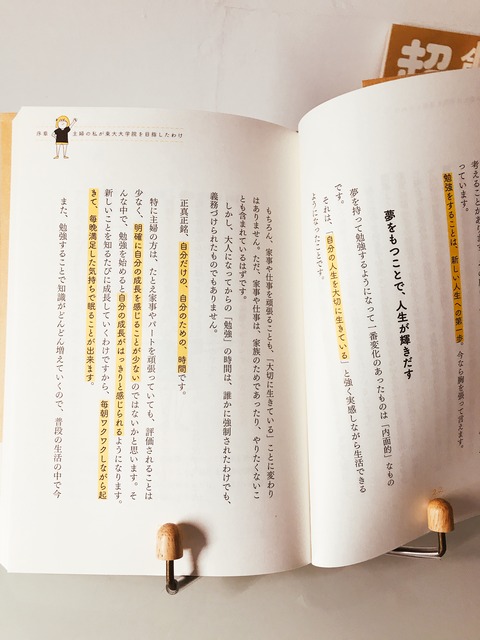 超
考えることがあります
っています。
勉強をすることは、新しい人生への第一歩。今なら胸を張って言えます。
夢をもつことで、人生が輝きだす
夢を持って勉強するようになって一番変化のあったものは「内面的」なもの
です。
それは、「自分の人生を大切に生きている」と強く実感しながら生活できる
ようになったことです。
序章 主婦の私が東大大学院を目指したわけ
もちろん、家事や仕事を頑張ることも、「大切に生きている」ことに変わり
はありません。ただ、家事や仕事は、家族のためであったり、やりたくないこ
とも含まれているはずです。
しかし、大人になってからの「勉強」の時間は、誰かに強制されたわけでも、
義務づけられたものでもありません。
正真正銘、自分だけの、自分のための、時間です。
特に主婦の方は、たとえ家事やパートを頑張っていても、評価されることは
少なく、明確に自分の成長を感じることが少ないのではないかと思います。そ
んな中で、勉強を始めると自分の成長がはっきりと感じられるようになります。
新しいことを知るたびに成長していくわけですから、毎朝ワクワクしながら起
きて、毎晩満足した気持ちで眠ることが出来ます。
また、勉強することで知識がどんどん増えていくので、普段の生活の中で今